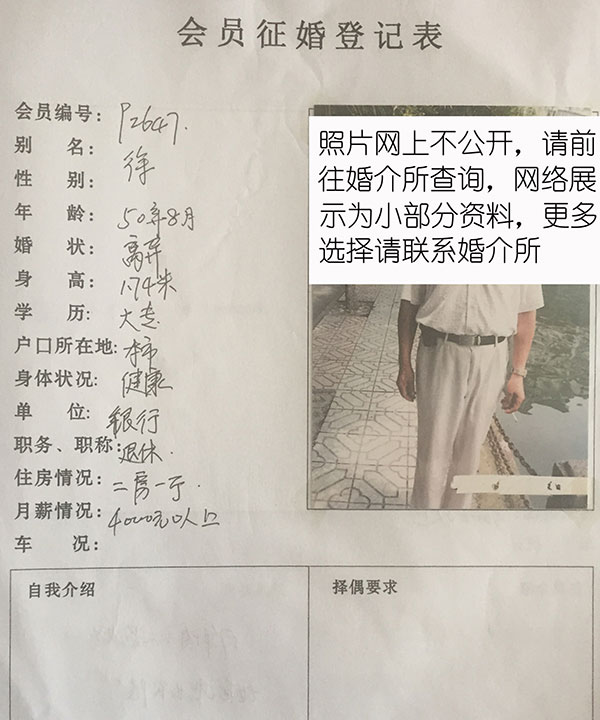 会员征婚登记表
会员编号: P2647.
别 名: 徐
性 别:
年 龄: 50年8月
婚 状: 离弃
身 高: 1.74米
学 历: 大专
户口所在地: 本市
身体状况: 健康
单 位: 银行
职务、职称: 退休.
住房情况: 二房一厅.
月薪情况: 4000元以上
车 况:
照片网上不公开，请前
往婚介所查询，网络展
示为小部分资料，更多
选择请联系婚介所
自我介绍
择偶要求